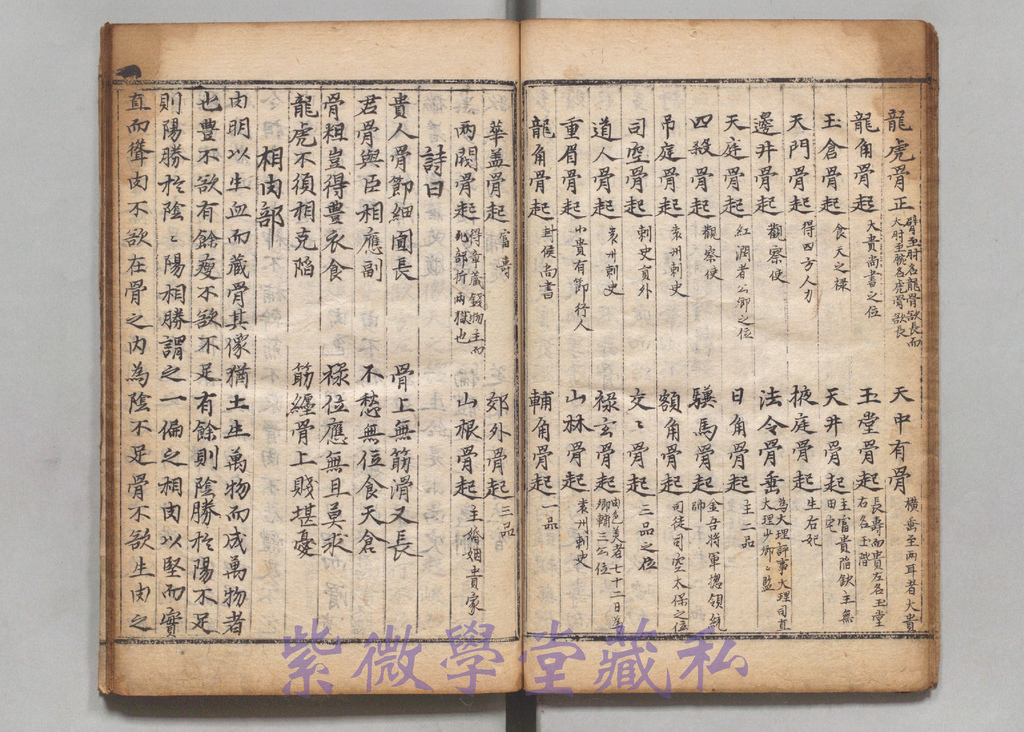 龍虎骨正 臂至肘名龍骨欲長而大肘至腕名虎骨欲長 天中有骨 橫齊至两耳者大貴
龍角骨起 大貴尚書之位 玉堂骨起 長壽而貴左名玉堂右名玉階
玉倉骨起 食天之祿 天井骨起 主富貴陷欽主無田宅
天門骨起 得四方人力 掖庭骨起 生右妃
邊井骨起 觀察使 法令骨垂 為大理評事大理司直大理少卿〻監
天庭骨起 紅潤者公卿之位 日角骨起 主二品
四殺骨起 觀察使 驛馬骨起 金吾將軍揔領統帥
吊庭骨起 袁州刺史 額角骨起 司徒司空太保之位
司空骨起 刺史員外 交〻骨起 三品之位
道人骨起 袁州刺史 祿玄骨起 由色美者七十二日為卿輔三公位
重眉骨起 小貴有節行人 山林骨起 袁州刺史
龍角骨起 封侯尚書 輔角骨起 一品
華盖骨起 富壽 郊外骨起 三品
两闕骨起 得章藏錢物主而此部折两獄也 山根骨起 主婚姻貴家
詩曰
貴人骨節細圓長 骨上無筋滑又長
君骨與臣相應副 不愁無位食天倉
骨粗豈得豊衣食 祿位應無且莫求
龍虎不須相克陷 筋纏骨上賤堪憂
相肉部
肉明以生血而藏骨其像猶土生萬物而成萬物者
也豊不欲有餘瘦不欲不足有餘則陰勝於陽不足
則陽勝於陰〻陽相勝謂之一偏之相肉以堅而實
直而聳肉不欲在骨之内為陰不足骨不欲生肉之
紫微學堂藏私